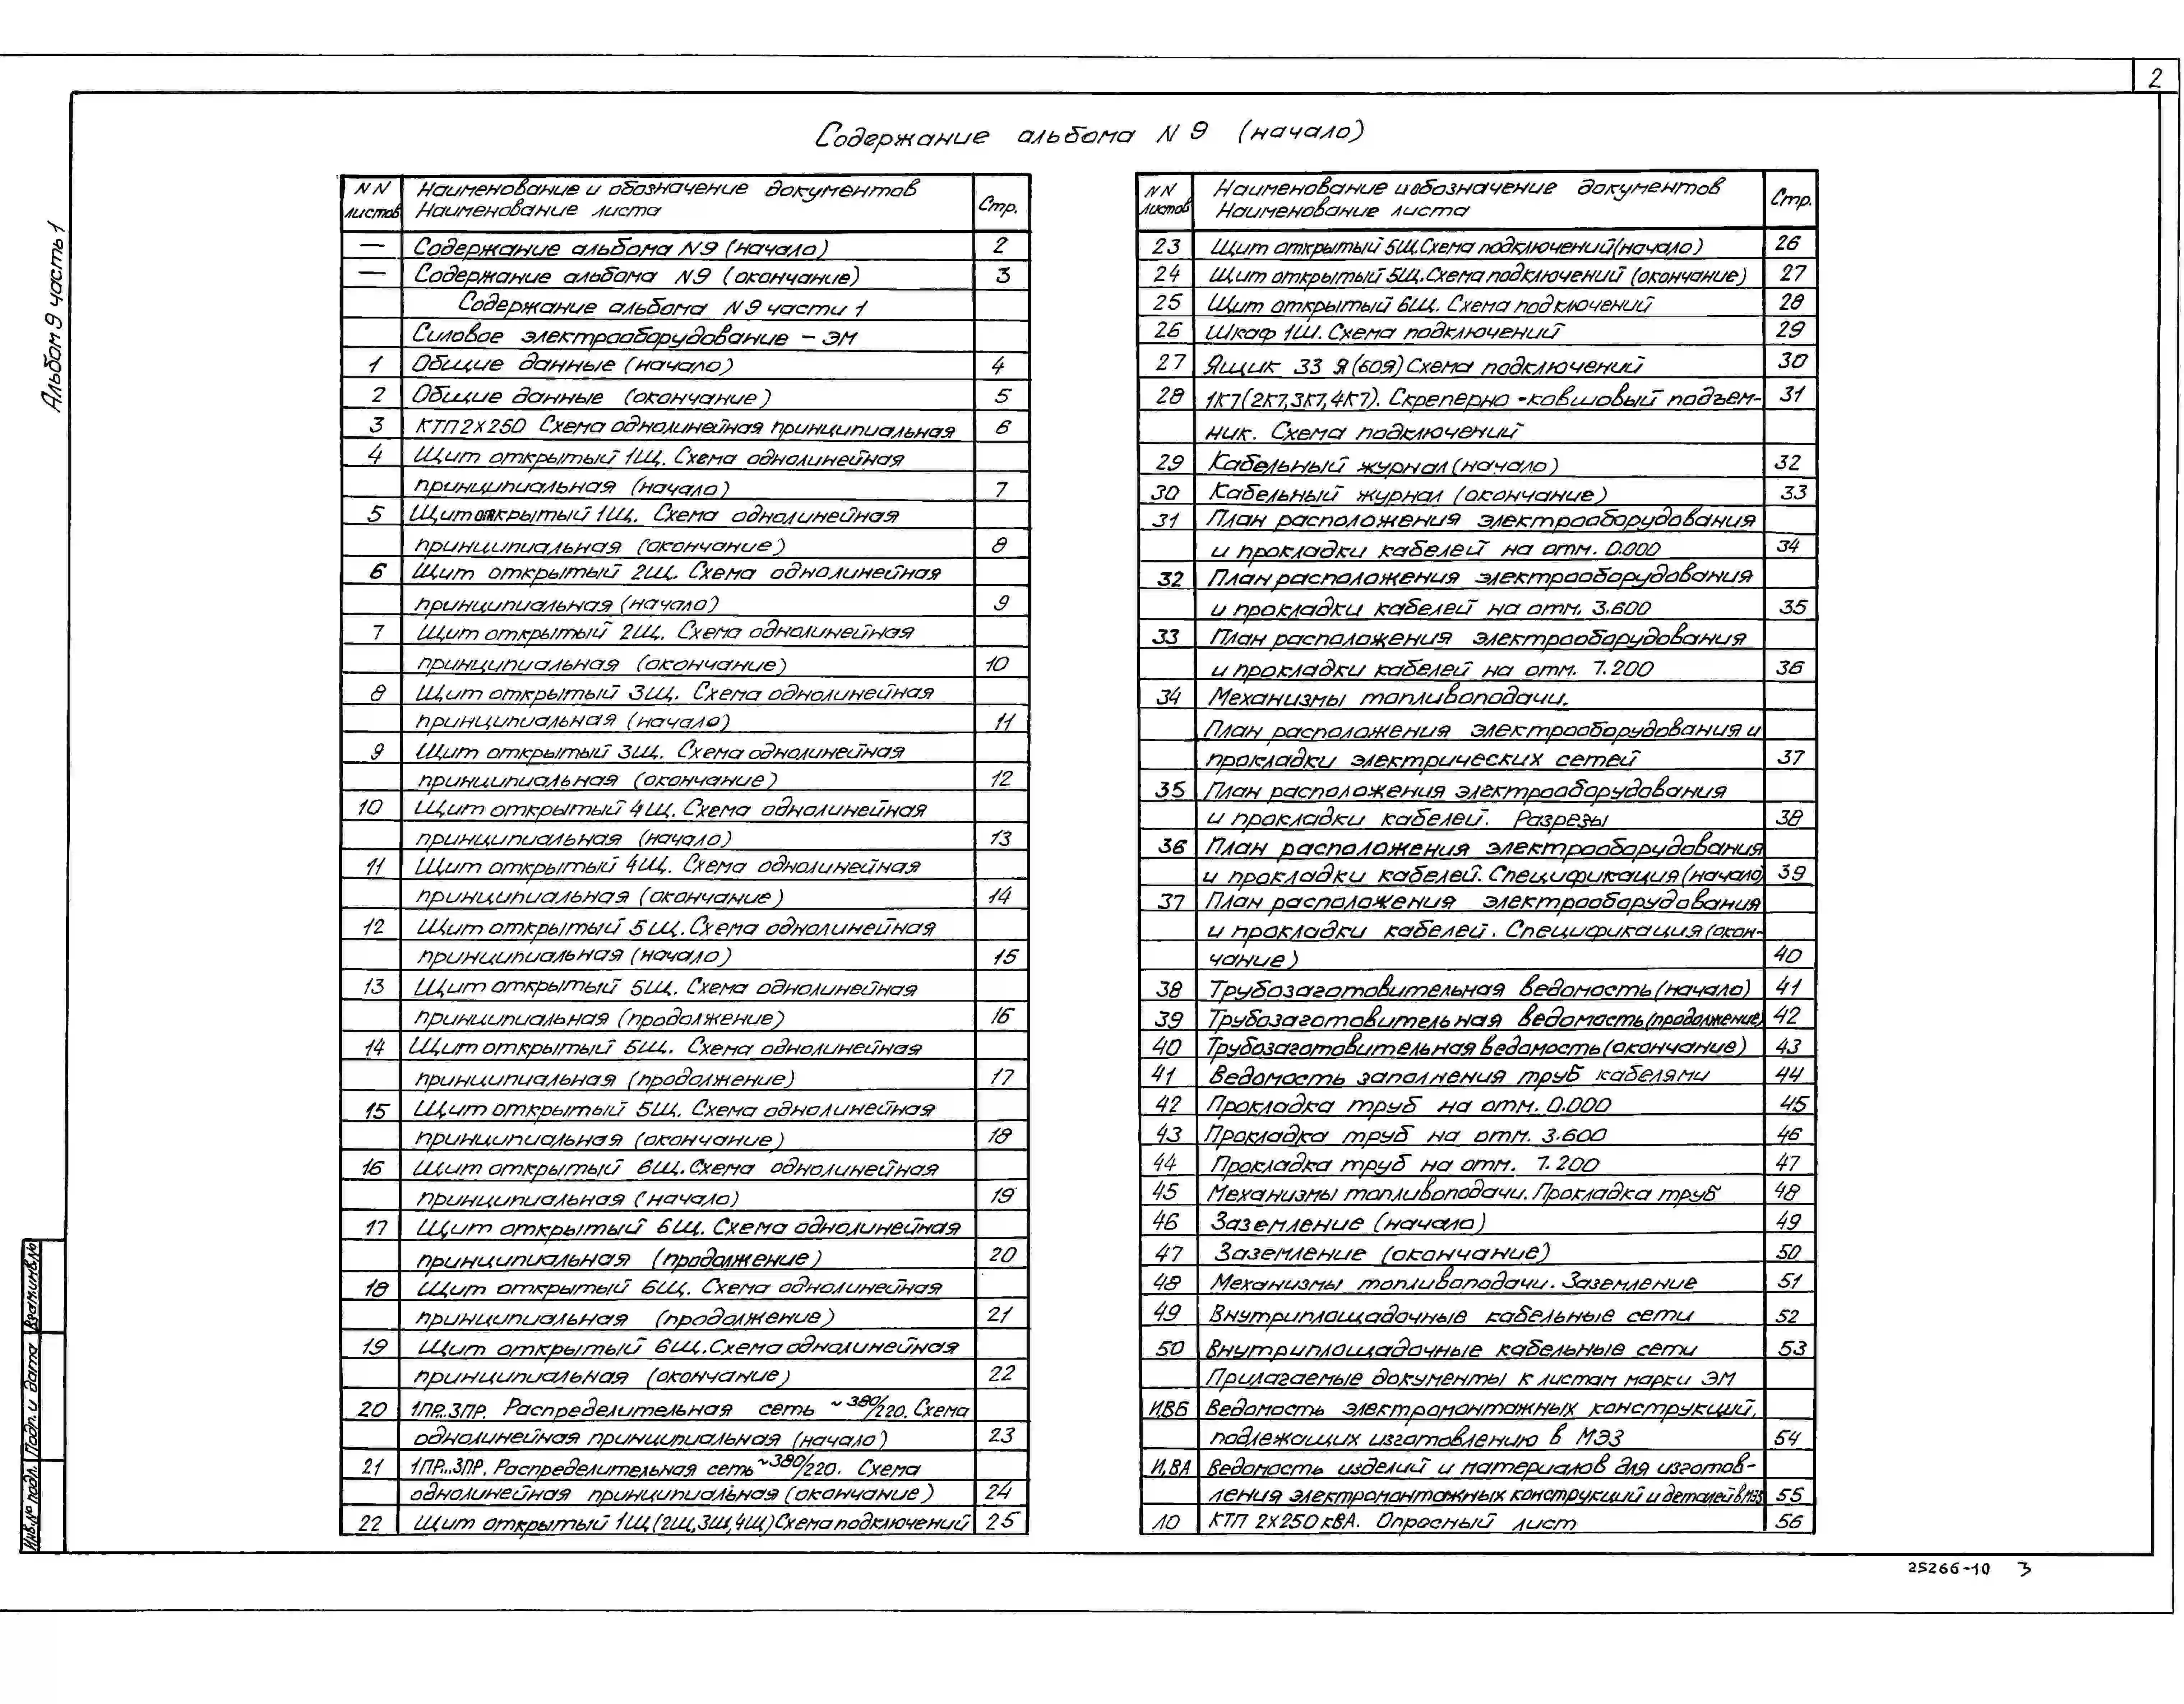 2
Содержание альбома N 9 (начало)
Альбом 9 часть 1
NN листов | Наименование и обозначение документов Наименование листа | Стр.
— Содержание альбома N9 (начало) 2
— Содержание альбома N9 (окончание) 3
Содержание альбома N9 части 1
Силовое электрооборудование – ЭМ
1 Общие данные (начало) 4
2 Общие данные (окончание) 5
3 КТП 2х250 Схема однолинейная принципиальная 6
4 Щит открытый 1Щ. Схема однолинейная
принципиальная (начало) 7
5 Щит открытый 1Щ. Схема однолинейная
принципиальная (окончание) 8
6 Щит открытый 2Щ. Схема однолинейная
принципиальная (начало) 9
7 Щит открытый 2Щ. Схема однолинейная
принципиальная (окончание) 10
8 Щит открытый 3Щ. Схема однолинейная
принципиальная (начало) 11
9 Щит открытый 3Щ. Схема однолинейная
принципиальная (окончание) 12
10 Щит открытый 4Щ. Схема однолинейная
принципиальная (начало) 13
11 Щит открытый 4Щ. Схема однолинейная
принципиальная (окончание) 14
12 Щит открытый 5Щ. Схема однолинейная
принципиальная (начало) 15
13 Щит открытый 5Щ. Схема однолинейная
принципиальная (продолжение) 16
14 Щит открытый 5Щ. Схема однолинейная
принципиальная (продолжение) 17
15 Щит открытый 5Щ. Схема однолинейная
принципиальная (окончание) 18
16 Щит открытый 6Щ. Схема однолинейная
принципиальная (начало) 19
17 Щит открытый 6Щ. Схема однолинейная
принципиальная (продолжение) 20
18 Щит открытый 6Щ. Схема однолинейная
принципиальная (продолжение) 21
19 Щит открытый 6Щ. Схема однолинейная
принципиальная (окончание) 22
20 1ПР...3ПР. Распределительная сеть ~380/220. Схема
однолинейная принципиальная (начало) 23
21 1ПР...3ПР. Распределительная сеть ~380/220. Схема
однолинейная принципиальная (окончание) 24
22 Щит открытый 1Щ (2Щ, 3Щ, 4Щ) Схема подключений 25
NN листов | Наименование и обозначение документов Наименование листа | Стр.
23 Щит открытый 5Щ. Схема подключений (начало) 26
24 Щит открытый 5Щ. Схема подключений (окончание) 27
25 Щит открытый 6Щ. Схема подключений 28
26 Шкаф 1Ш. Схема подключений 29
27 Ящик 33 Я (60Я) Схема подключений 30
28 1К7 (2К7, 3К7, 4К7). Скреперно-ковшовый подъем- 31
ник. Схема подключений
29 Кабельный журнал (начало) 32
30 Кабельный журнал (окончание) 33
31 План расположения электрооборудования
и прокладки кабелей на отм. 0.000 34
32 План расположения электрооборудования
и прокладки кабелей на отм. 3.600 35
33 План расположения электрооборудования
и прокладки кабелей на отм. 7.200 36
34 Механизмы топливоподачи.
План расположения электрооборудования и
прокладки электрических сетей 37
35 План расположения электрооборудования
и прокладки кабелей. Разрезы 38
36 План расположения электрооборудования
и прокладки кабелей. Спецификация (начало) 39
37 План расположения электрооборудования
и прокладки кабелей. Спецификация (окон-
чание) 40
38 Трубозаготовительная ведомость (начало) 41
39 Трубозаготовительная ведомость (продолжение) 42
40 Трубозаготовительная ведомость (окончание) 43
41 Ведомость заполнения труб кабелями 44
42 Прокладка труб на отм. 0.000 45
43 Прокладка труб на отм. 3.600 46
44 Прокладка труб на отм. 7.200 47
45 Механизмы топливоподачи. Прокладка труб 48
46 Заземление (начало) 49
47 Заземление (окончание) 50
48 Механизмы топливоподачи. Заземление 51
49 Внутриплощадочные кабельные сети 52
50 Внутриплощадочные кабельные сети 53
Прилагаемые документы к листам марки ЭМ
И.ВБ Ведомость электромонтажных конструкций,
подлежащих изготовлению в МЭЗ 54
И.ВА Ведомость изделий и материалов для изготов-
ления электромонтажных конструкций и деталей в МЭЗ 55
ЛО КТП 2х250 кВА. Опросный лист 56
Инв.№ подл. Подп. и дата Взам.инв.№
25266-10 3